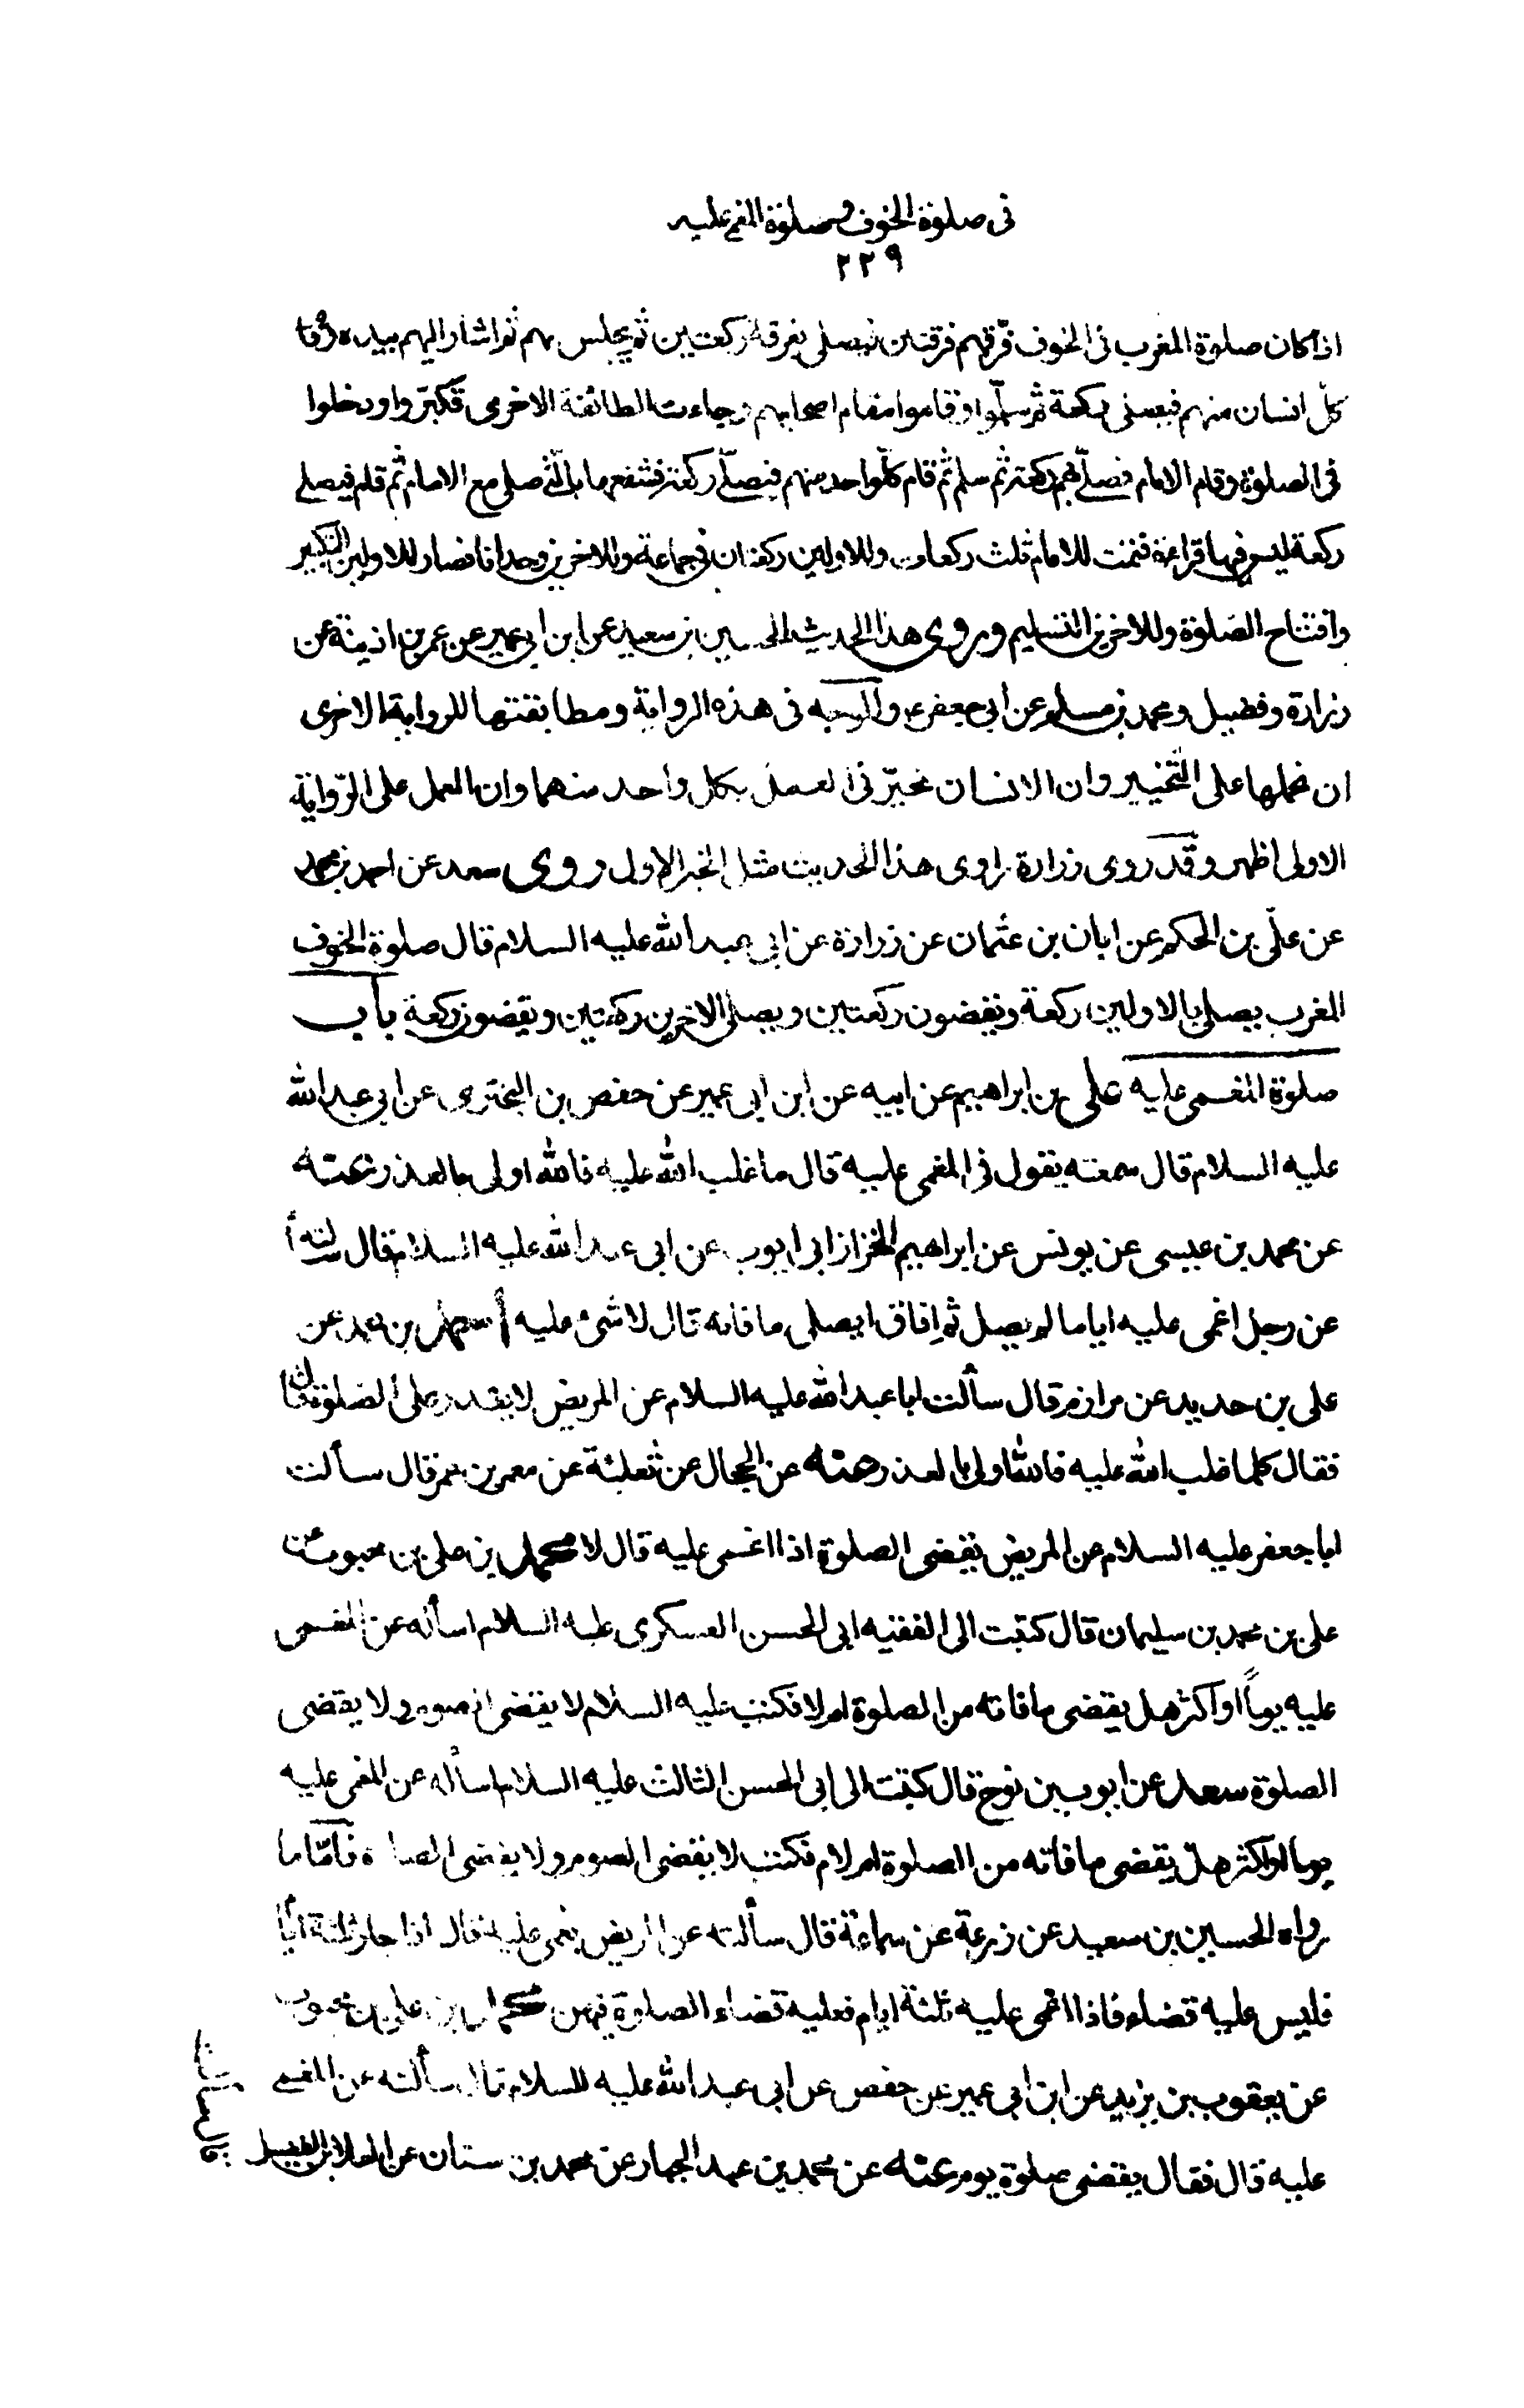 فى صلوة الخوف وصلوة المغمى عليه
٢٢٩
اذا كان صلوة المغرب فى الخوف فرّقهم فرقتين فيصلى بفرقة ركعتين ثم يجلس بهم ثم اشار اليهم بيده فقام
كلّ انسان منهم فيصلى ركعة ثم سلّموا وقاموا مقام اصحابهم وجاءت الطائفة الاخرى فكبّروا ودخلوا
فى الصلوة وقام الامام فصلّى بهم ركعة ثم سلم ثم قام كلّ واحد منهم فيصلّى ركعة فشفعها بالّتى صلى مع الامام ثم قام فيصلى
ركعة ليس فيها قراءة فتمت للامام ثلث ركعات وللاولين ركعتان فى جماعة وللاخرين وحدانا فصار للاولين التكبير
وافتتاح الصلوة وللاخرين التسليم وروى هذا الحديث الحسين بن سعيد عن ابن ابى عمير عن عمر بن اذينة عن
زرارة وفضيل ومحمد بن مسلم عن ابى جعفر ع والوجه فى هذه الرواية ومطابقتها للرواية الاخرى
ان نحملها على التّخيير وان الانسان مخيّر فى العمل بكل واحد منهما وان العمل على الرّواية
الاولى اظهر وقد روى زرارة راوى هذا الحديث مثل الخبر الاول روى سعد عن احمد بن محمد
عن علّى بن الحكم عن ابان بن عثمان عن زرارة عن ابى عبد الله عليه السلام قال صلوة الخوف
المغرب يصلى بالاولين ركعة ويقضون ركعتين ويصلى الاخرين ركعتين ويقضون ركعة باب
صلوة المغمى عليه على بن ابراهيم عن ابيه عن ابن ابى عمير عن حفص بن البخترى عن ابى عبد الله
عليه السلام قال سمعته يقول فى المغمى عليه قال ما غلب الله عليه فالله اولى بالعذر عنه
عن محمد بن عيسى عن يونس عن ابراهيم الخزاز ابى ايوب عن ابى عبد الله عليه السلام قال سألته
عن رجل اغمى عليه اياما لم يصل ثم افاق ايصلى ما فاته قال لا شئ عليه احمد بن محمد عن
على بن حديد عن مرازم قال سألت ابا عبد الله عليه السلام عن المريض لا يقدر على الصلوة قال
فقال كلما غلب الله عليه فالله اولى بالعذر عنه عن الحجال عن ثعلبة عن معمر بن عمر قال سألت
ابا جعفر عليه السلام عن المريض يقضى الصلوة اذا اغمى عليه قال لا محمد بن على بن محبوب عن
على بن محمد بن سليمان قال كتبت الى الفقيه ابى الحسن العسكرى عليه السلام اسأله عن المغمى
عليه يوماً او اكثر هل يقضى ما فاته من الصلوة ام لا فكتب عليه السلام لا يقضى الصوم ولا يقضى
الصلوة سعد عن ايوب بن نوح قال كتبت الى ابى الحسن الثالث عليه السلام اسأله عن المغمى عليه
يوما او اكثر هل يقضى ما فاته من الصلوة ام لا فكتب لا يقضى الصوم ولا يقضى الصلوة فأمّا ما
رواه الحسين بن سعيد عن زرعة عن سماعة قال سألته عن المريض يغمى عليه قال اذا جاز ثلثة ايام
فليس عليه قضاء فاذا اغمى عليه ثلثة ايام فعليه قضاء الصلوة فيهن محمد بن على بن محبوب
عن يعقوب بن يزيد عن ابن ابى عمير عن حفص عن ابى عبد الله عليه السلام قال سألته عن المغمى
عليه قال فقال يقضى صلوة يوم عنه عن محمد بن عبد الجبار عن محمد بن سنان عن العلا بن الفضيل
قال سألت